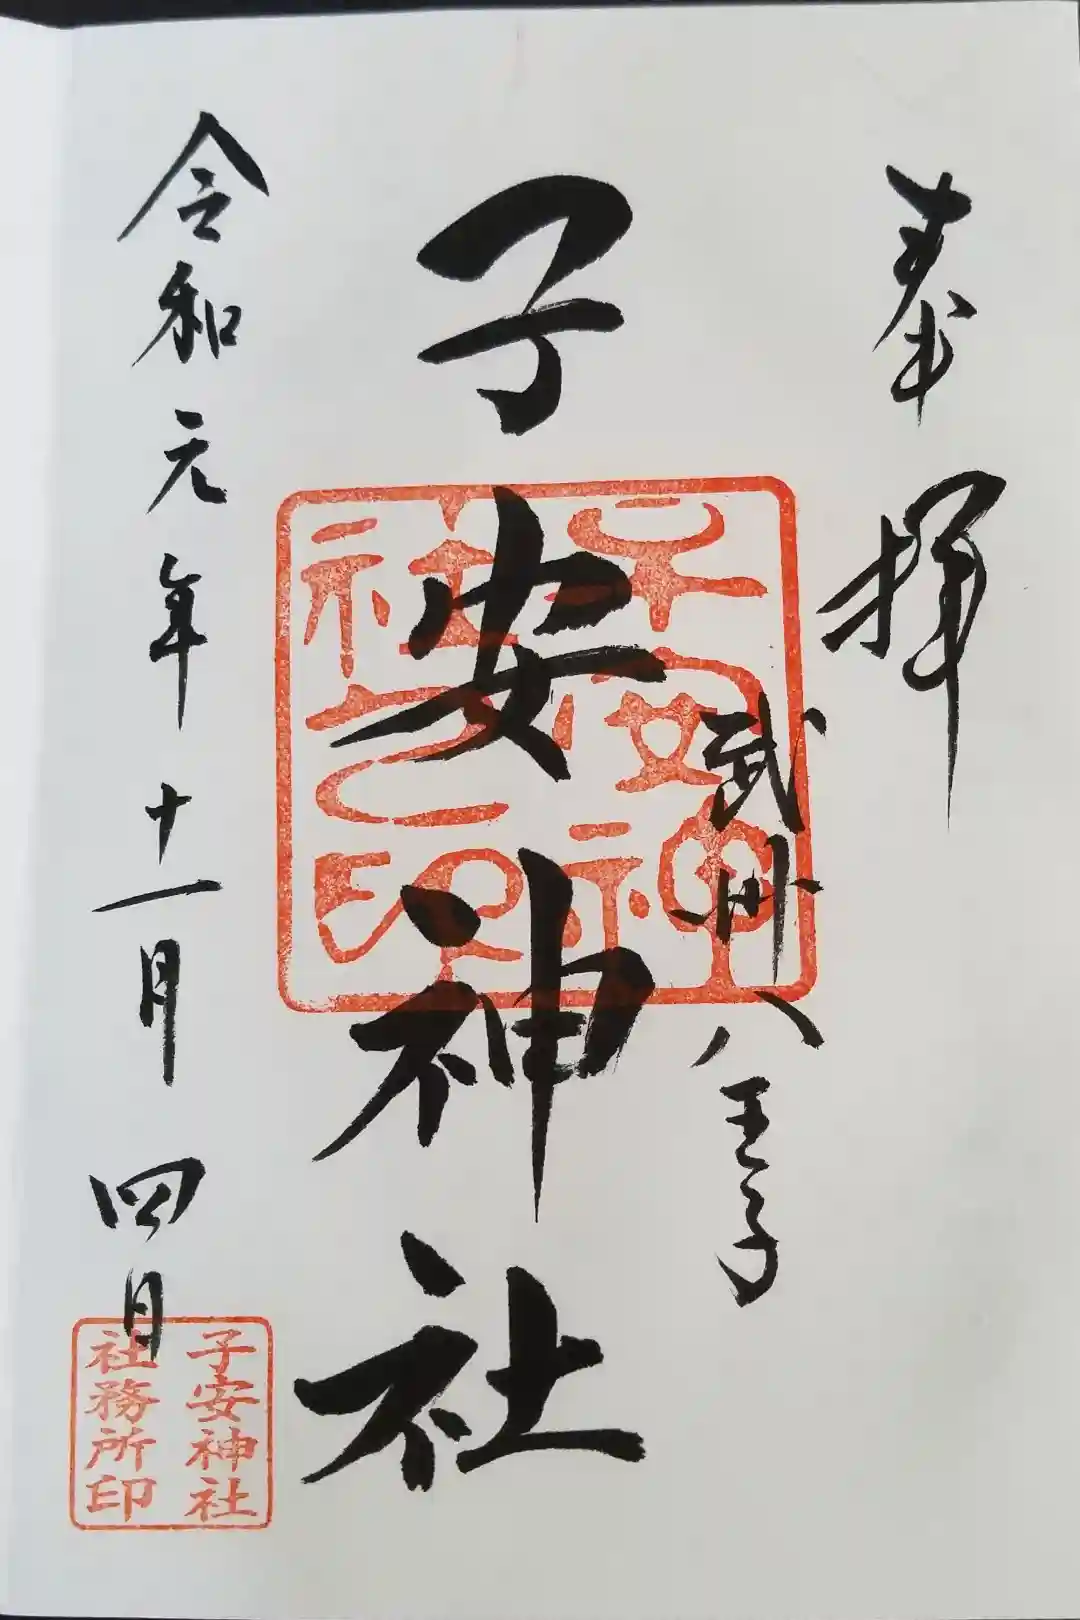 奉拝
武州八王子
子安神社
子安神
社之印
令和元年十一月四日
子安神社
社務所印